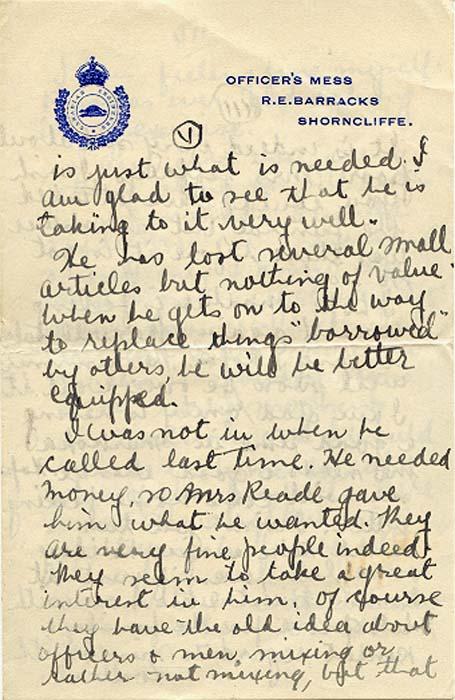 OFFICER'S MESS
R.E. BARRACKS
SHORNCLIFFE.
CANADIAN ENGINEERS
V
is just what is needed. I
am glad to see that he is
taking to it very well.
He has lost several small
articles but nothing of value.
When he gets on to the way
to replace things "borrowed"
by others, he will be better
equipped.
I was not in when he
called last time. He needed
money, so Mrs Reade gave
him what he wanted. They
are very fine people indeed.
They seem to take a great
interest in him. Of course
they have the old idea about
officers & men, mixing or
rather not mixing, but that